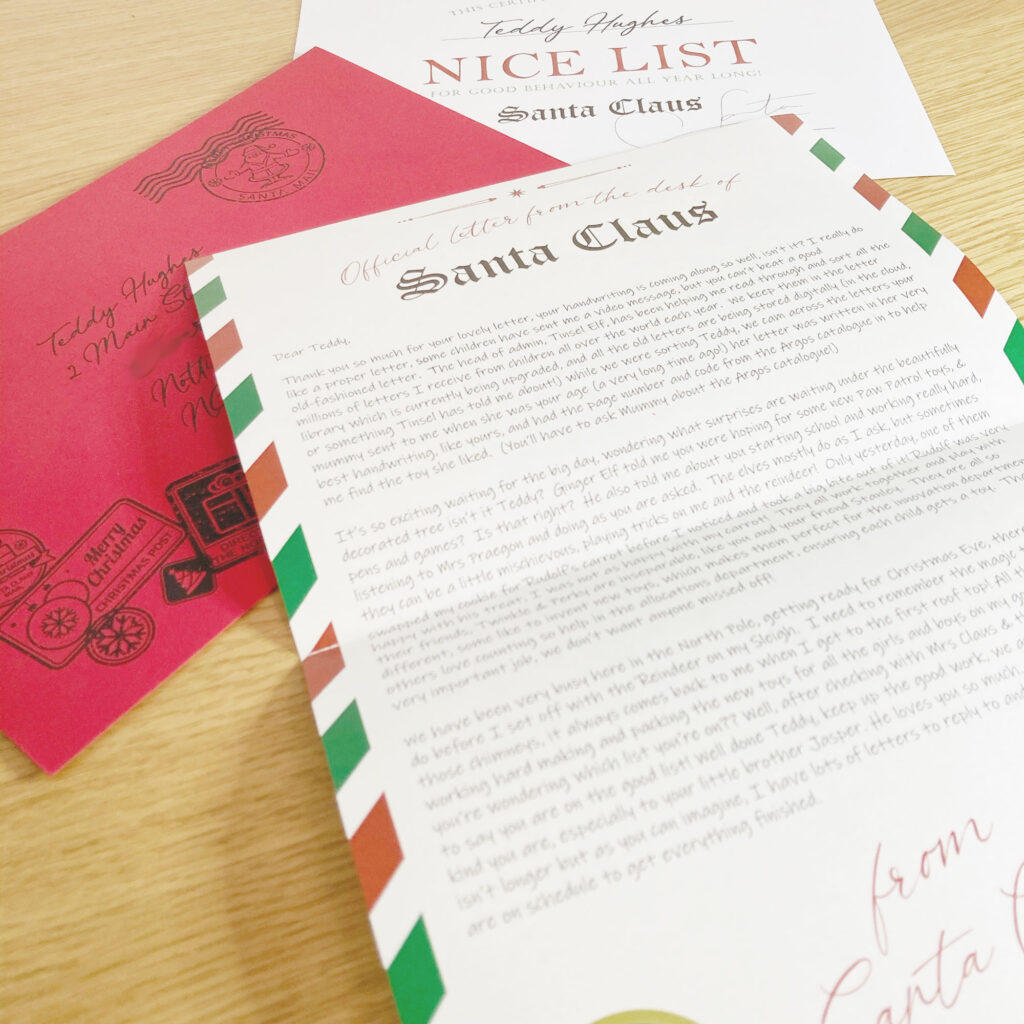 THIS CERTIF
Teddy Hughes
NICE LIST
FOR GOOD BEHAVIOUR ALL YEAR LONG!
Santa Claus
CHRISTMAS
SANTA MAIL
Teddy Hughes
2 Main St
Nott
NG
Merry
Christmas
CHRISTMAS POST
Official letter from the desk of
Santa Claus
Dear Teddy,
Thank you so much for your lovely letter, your handwriting is coming along so well, isn't it? I really do
like a proper letter, some children have sent me a video message, but you can't beat a good
old-fashioned letter. The head of admin, Tinsel Elf, has been helping me read through and sort all the
millions of letters I receive from children all over the world each year. We keep them in the letter
library which is currently being upgraded, and all the old letters are being stored digitally (in the cloud,
or something Tinsel has told me about!) While we were sorting Teddy, we cam across the letters your
mummy sent to me when she was your age (a very long time ago!) her letter was written in her very
best handwriting, like yours, and had the page number and code from the Argos catalogue in to help
me find the toy she liked. (You'll have to ask Mummy about the Argos catalogue!)
It's so exciting waiting for the big day, wondering what surprises are waiting under the beautifully
decorated tree isn't it Teddy? Ginger Elf told me you were hoping for some new Paw Patrol toys, &
pens and games? Is that right? He also told me about you starting school and working really hard,
listening to Mrs Praegon and doing as you are asked. The elves mostly do as I ask, but sometimes
they can be a little mischievous, playing tricks on me and the reindeer! Only yesterday, one of them
swapped my cookie for Rudolf's carrot before I noticed and took a big bite out of it! Rudolf was very
happy with his treat, I was not as happy with my carrot! They all work together and play with
their friends, Twinkle & Perky are inseparable, like you and your friend Stanley. They are all so
different, some like to invent new toys, which makes them perfect for the innovation department
others love counting so help in the allocations department, ensuring each child gets a toy. Th
very important job, we don't want anyone missed off!
We have been very busy here in the North Pole, getting ready for Christmas Eve, there
do before I set off with the Reindeer on my Sleigh. I need to remember the magic t
those chimneys, it always comes back to me when I get to the first roof top! All t
working hard making and packing the new toys for all the girls and boys on my g
you're wondering which list you're on?? Well, after checking with Mrs Claus & t
to say you are on the good list! Well done Teddy, keep up the good work, we a
kind you are, especially to your little brother Jasper. He loves you so much,
isn't longer but as you can imagine, I have lots of letters to reply to and
are on schedule to get everything finished.
from
Santa C